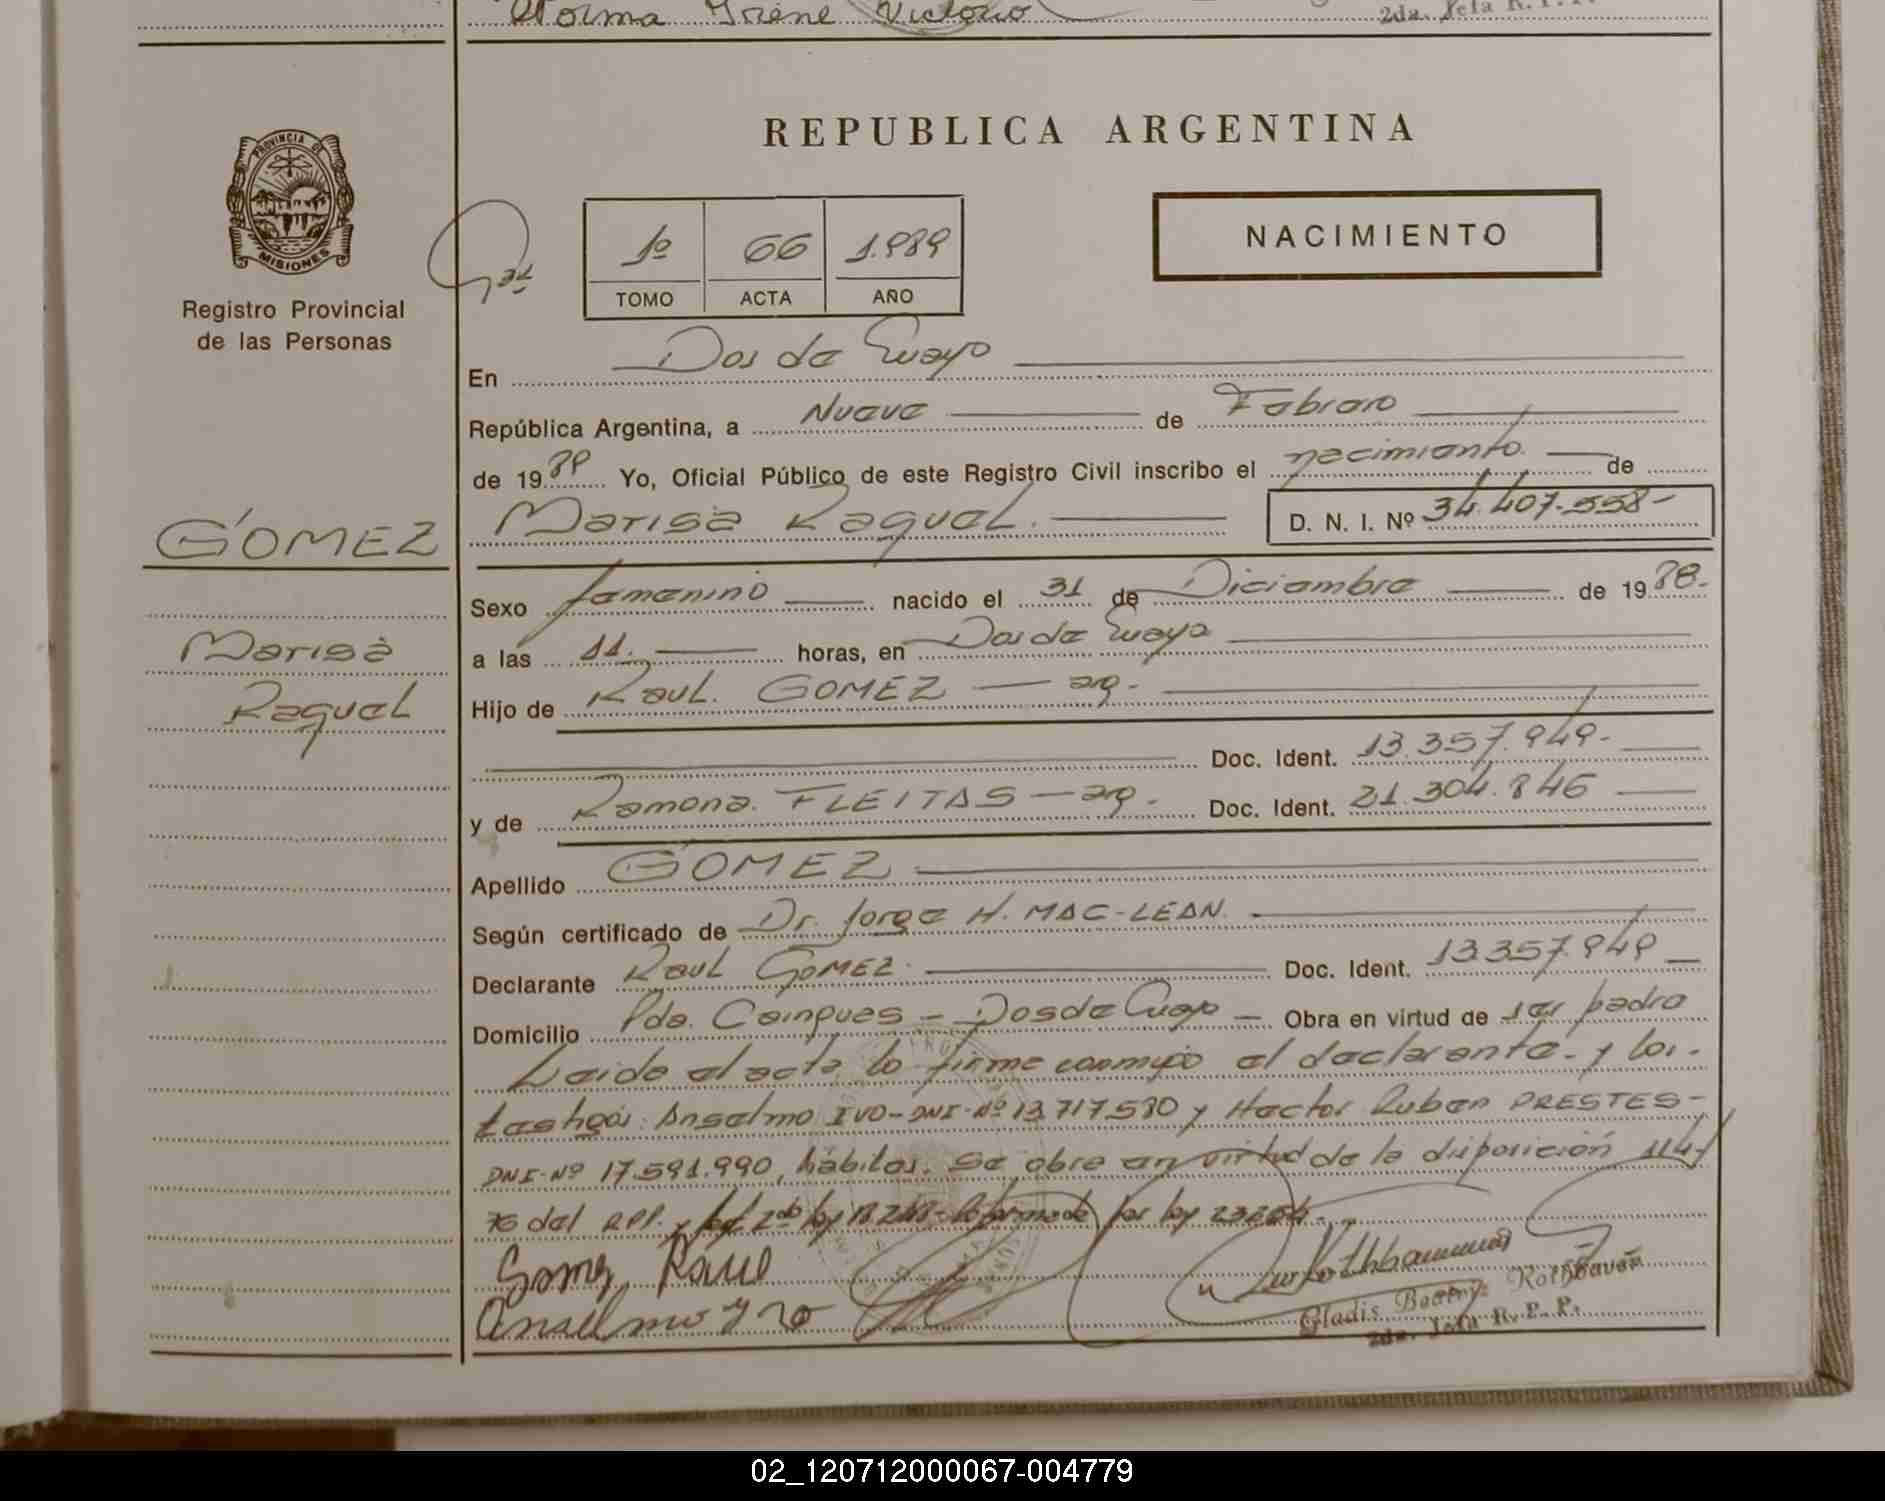 Norma Irene Victorio
2da. Jefa R.P.P.
REPUBLICA ARGENTINA
PROVINCIA DE
MISIONES
Registro Provincial
de las Personas
1º 66 1.989
TOMO ACTA AÑO
NACIMIENTO
En Dos de Mayo
República Argentina, a Nueve de Febrero
de 1989 Yo, Oficial Público de este Registro Civil inscribo el nacimiento. de
Marisa Raquel. D. N. I. Nº 34.407.558-
GOMEZ
Marisa
Raquel
Sexo femenino nacido el 31 de Diciembre de 1988.
a las 11. horas, en Dos de Mayo
Hijo de Raul. GOMEZ — arg.
Doc. Ident. 13.357.949.
y de Ramona. FLEITAS — arg. Doc. Ident. 21.304.846
Apellido GOMEZ
Según certificado de Dr. Jorge H. MAC-LEAN.
Declarante Raul GOMEZ. Doc. Ident. 13.357.949
Domicilio Pdo. Caingues - Dos de Mayo - Obra en virtud de ser padre
Leida el acta la firma conmigo el declarante. y los.
testigos: Anselmo IVO-DNI-Nº 13.717.580 y Hector Ruben PRESTES-
DNI-Nº 17.591.990, hábiles. Se obra en virtud de la disposición 114/
76 del RPP. y ley 18.248- Reformado por ley 23264.
Gomez Raul
Anselmo Yvo
Gladis Beatriz
2da. Jefa R. P. P.
02_120712000067-004779